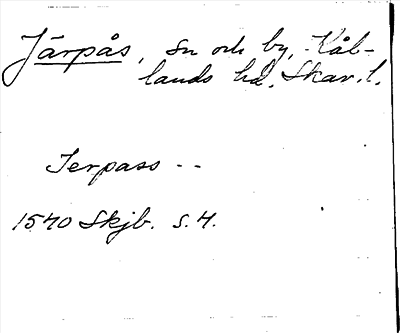 Järpås, sn och by, Kål-
lands hd. Skar. l.
Jerpass --
1540 Skjb. s. 4.